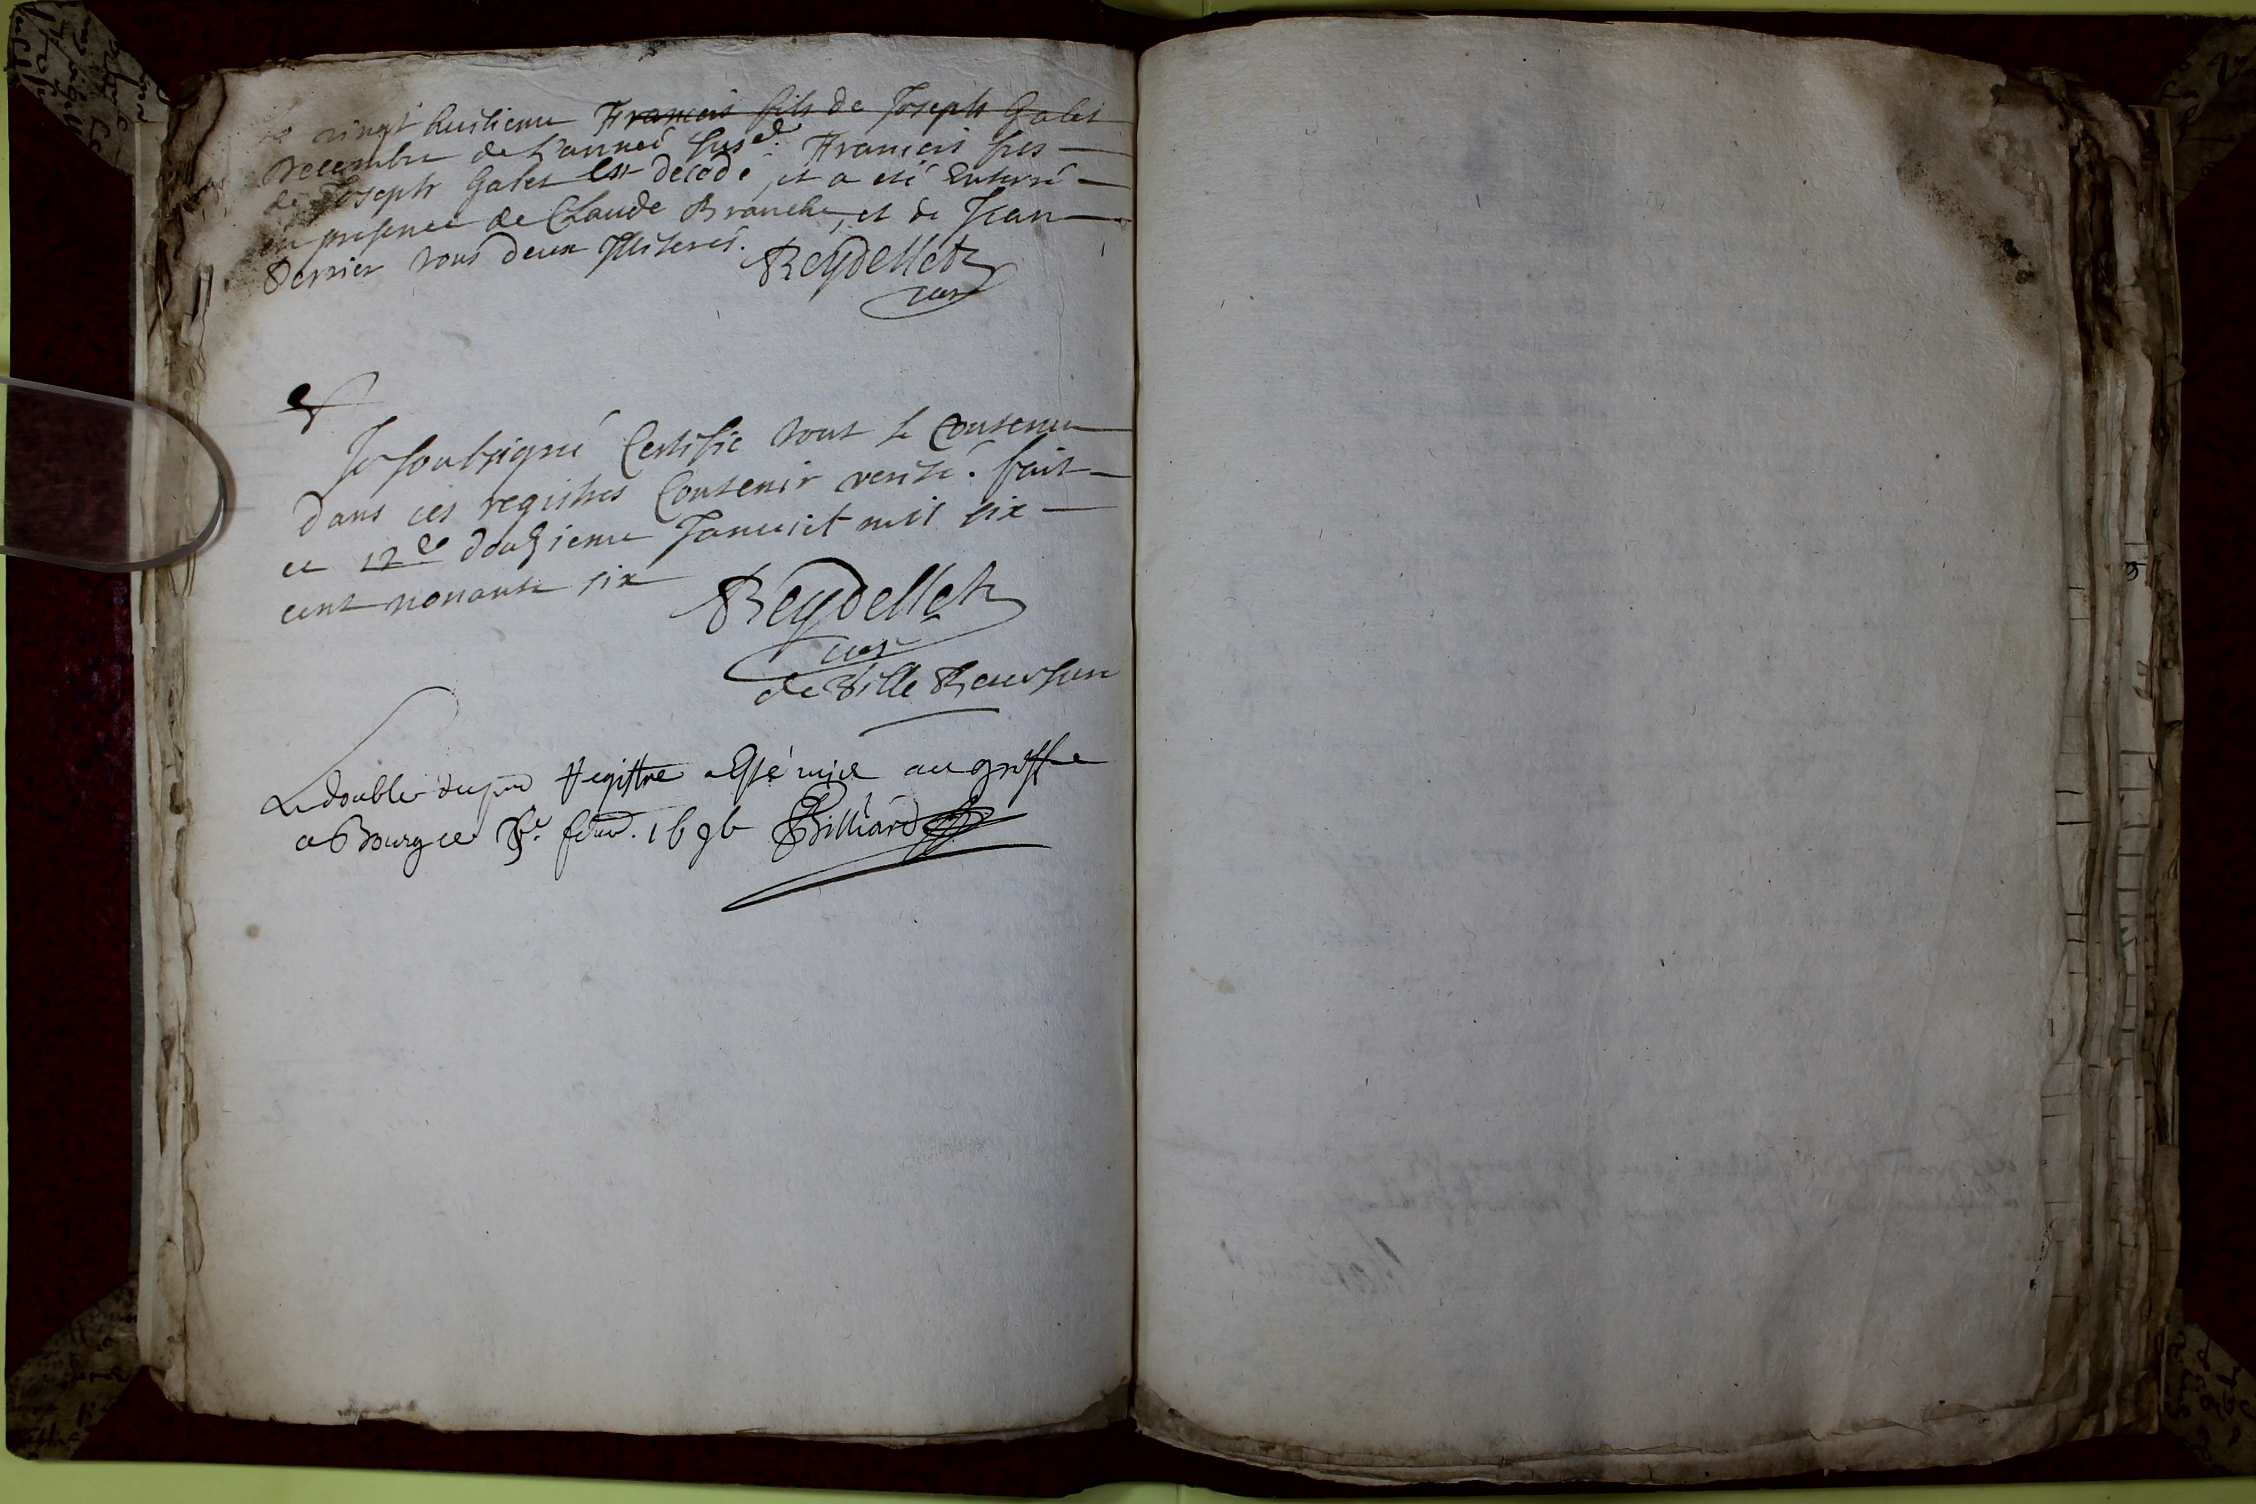 Le vingt huitieme Francois fils de Joseph Galet
Decembre de l'année susd. Francois fils
de Joseph Galet est décédé, et a eté Enterré
en presence de Claude Branche, et de Jean
Perrier tous deux Illiterés. Reydellet
curé
Je soubsigné Certifie tout le Contenu
dans ces registres Contenir verité. fait
ce 12e douzieme Januiet mil six
cent nonante six
Reydellet
curé
de Ville Reversure
Le double du pnt Registre a esté mis au greffe
a Bourg ce feuv. 1696 Billiard